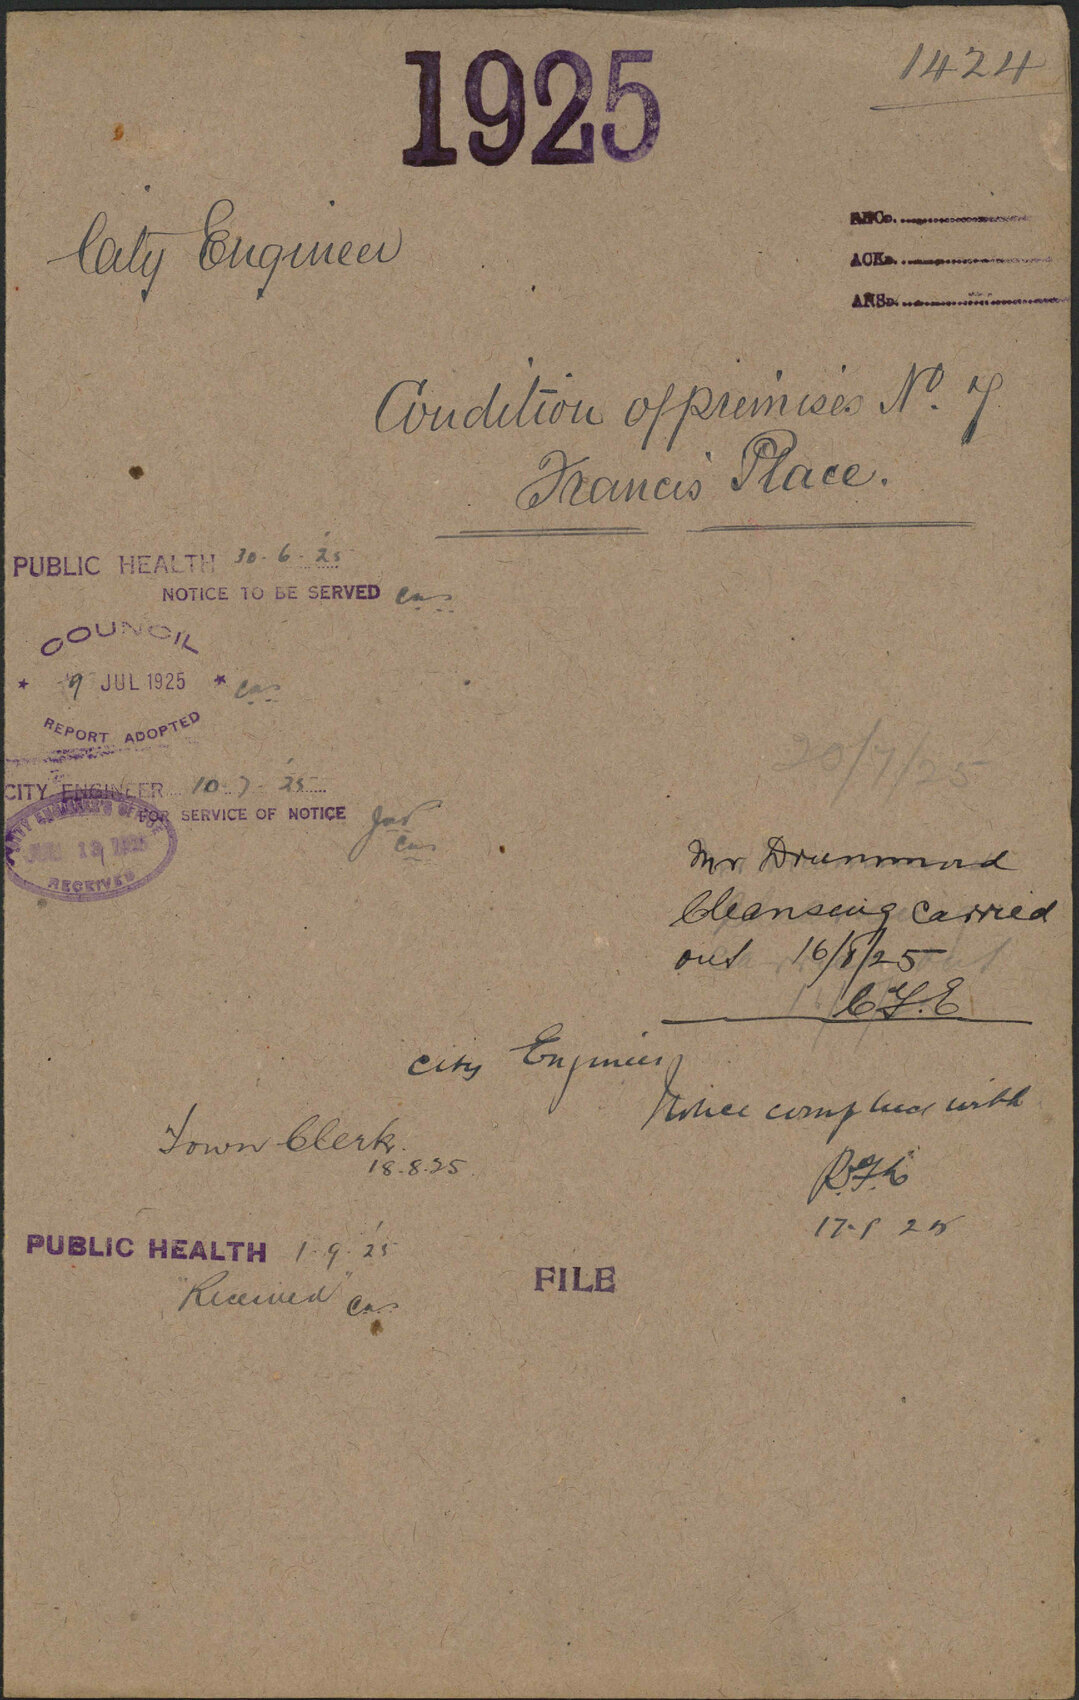 1925
1424
City Engineer
REC.
ACK.
ANS.
Condition of premises No. 7
Francis Place.
PUBLIC HEALTH 30.6.25
NOTICE TO BE SERVED
COUNCIL
9 JUL 1925
REPORT ADOPTED
20/7/25
CITY ENGINEER 10.7.25
FOR SERVICE OF NOTICE
CITY ENGINEER'S OFFICE
1925
RECEIVED
Mr Drummond
Cleansing carried
out 16/8/25
C.F.E
City Engineer
Notice complied with
17.8.25
Town Clerk.
18.8.25
PUBLIC HEALTH 1.9.25
"Received"
FILE